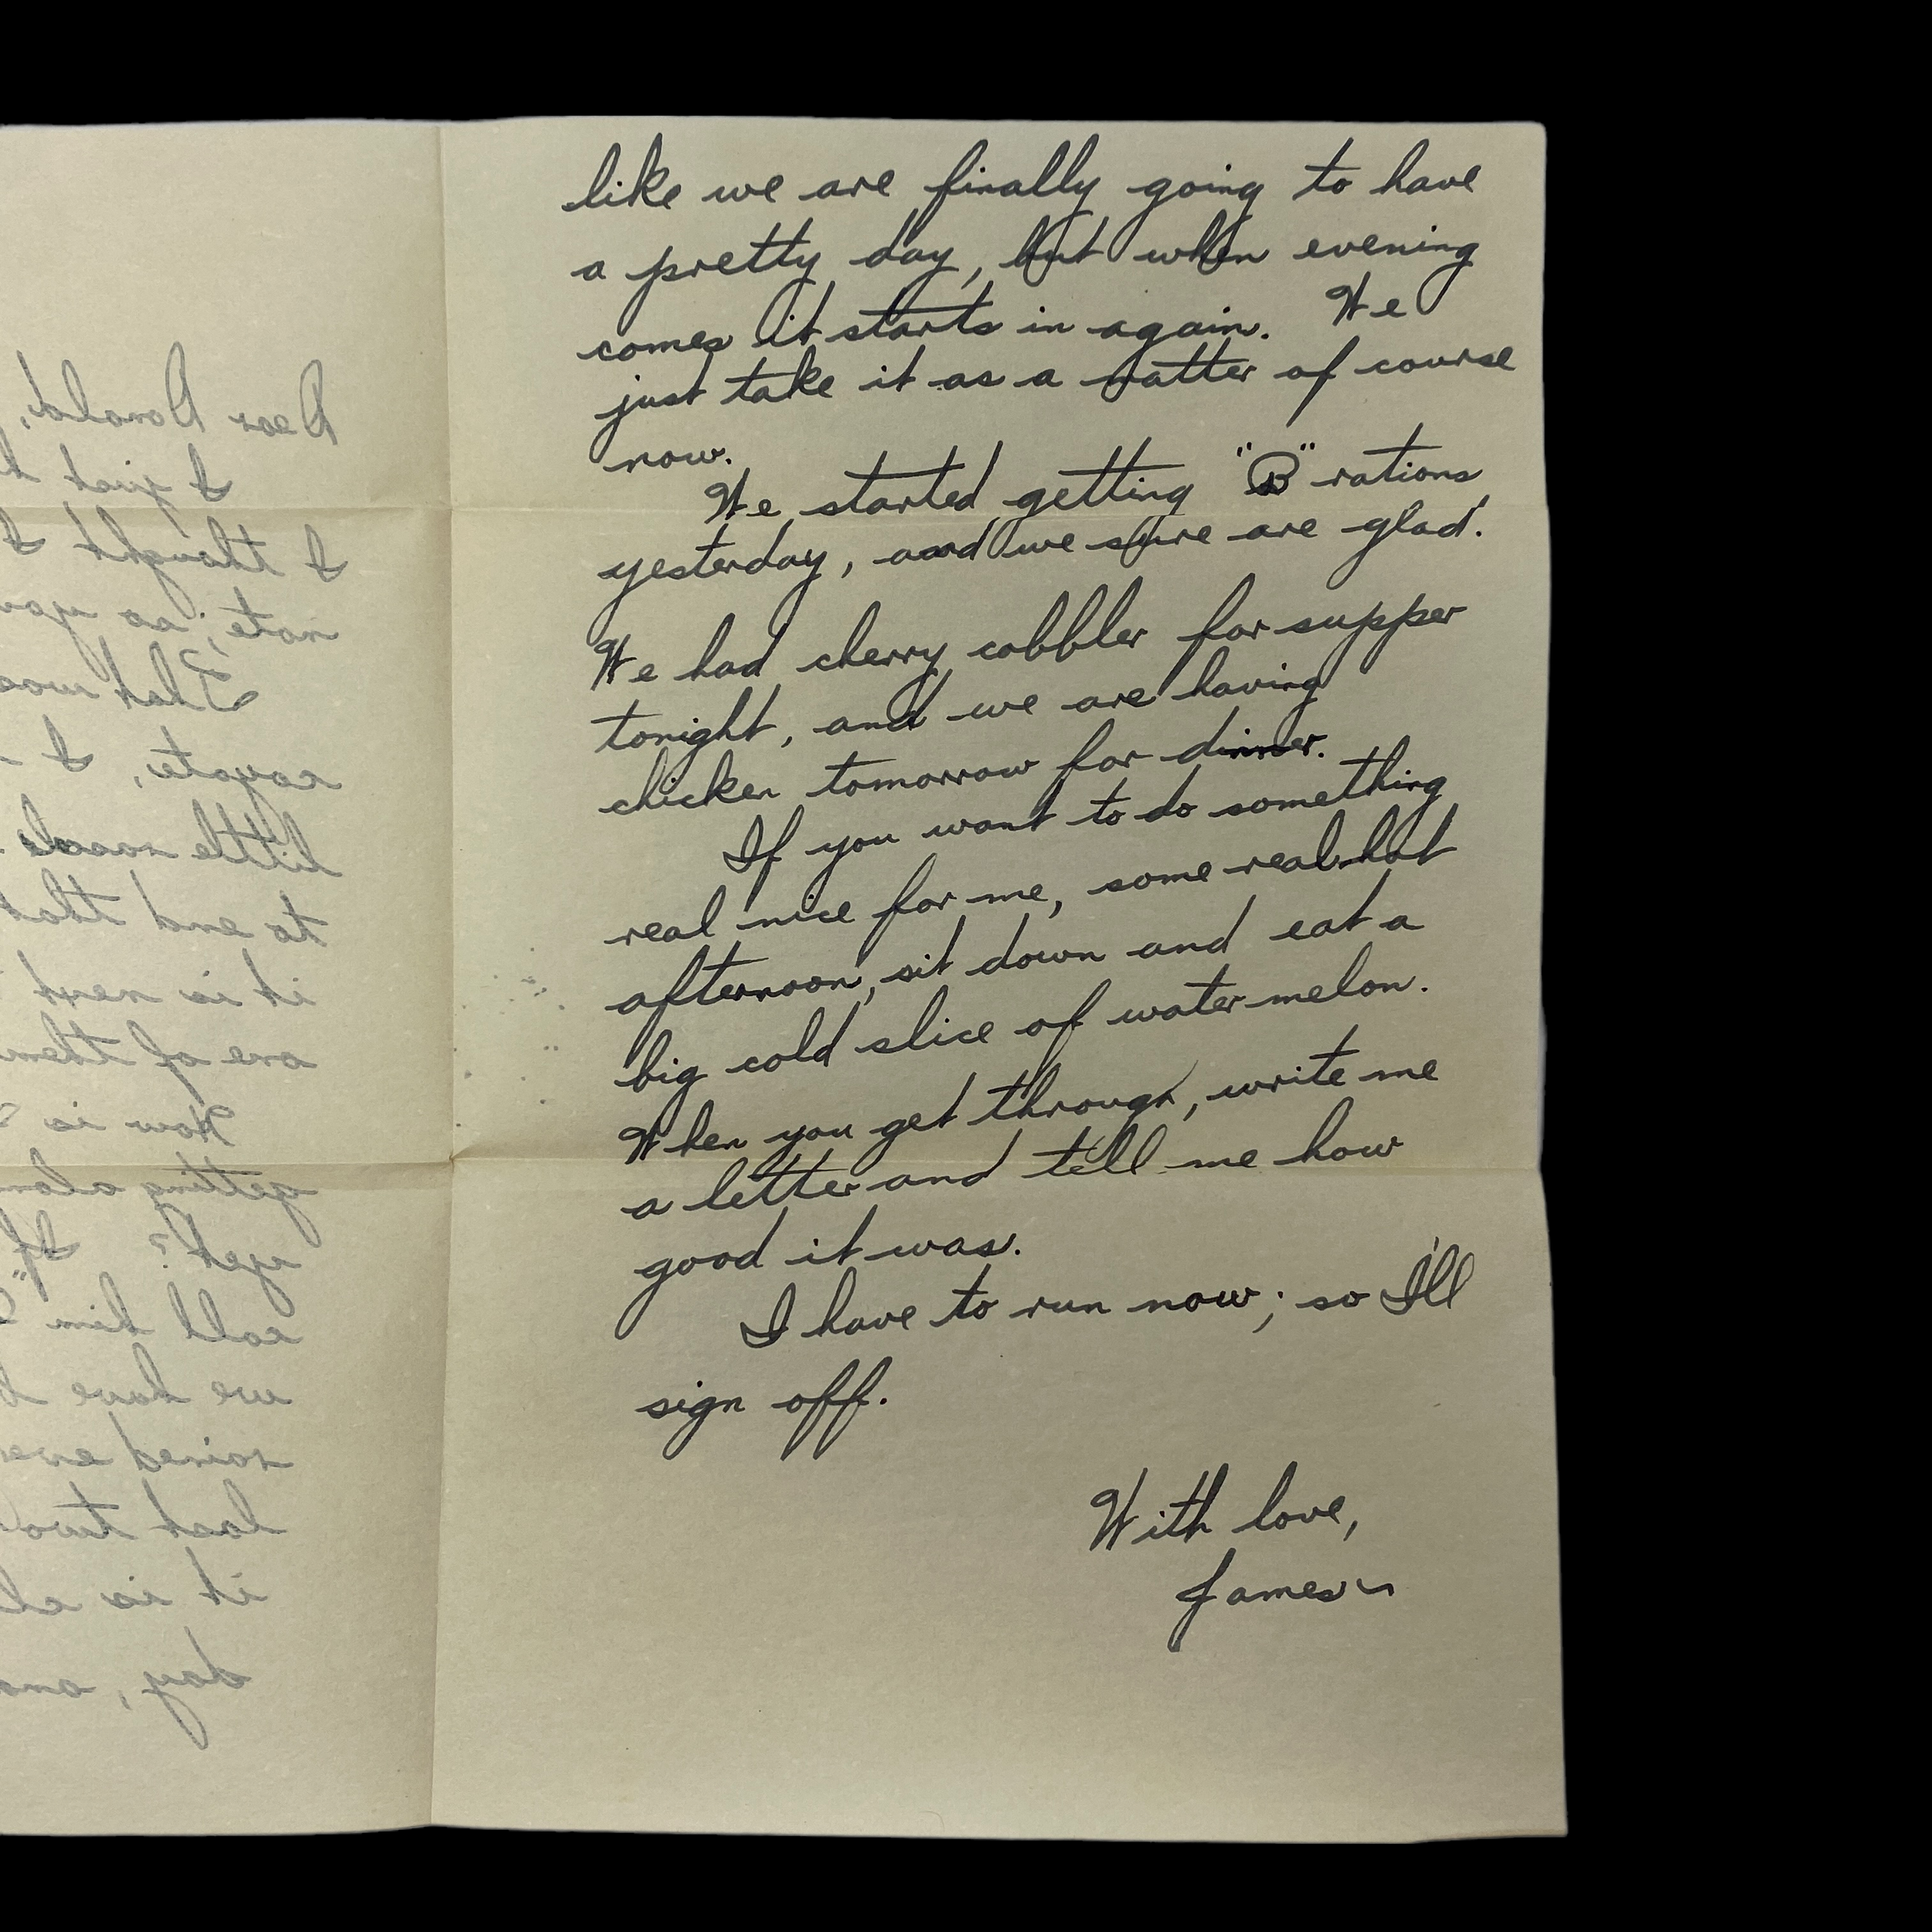 like we are finally going to have
a pretty day, but when evening
comes it starts in again. We
just take it as a matter of course
now.
We started getting "B" rations
yesterday, and we sure are glad.
We had cherry cobbler for supper
tonight, and we are having
chicken tomorrow for dinner.
If you want to do something
real nice for me, some real hot
afternoon, sit down and eat a
big cold slice of watermelon.
When you get through, write me
a letter and tell me how
good it was.
I have to run now; so I'll
sign off.
With love,
James